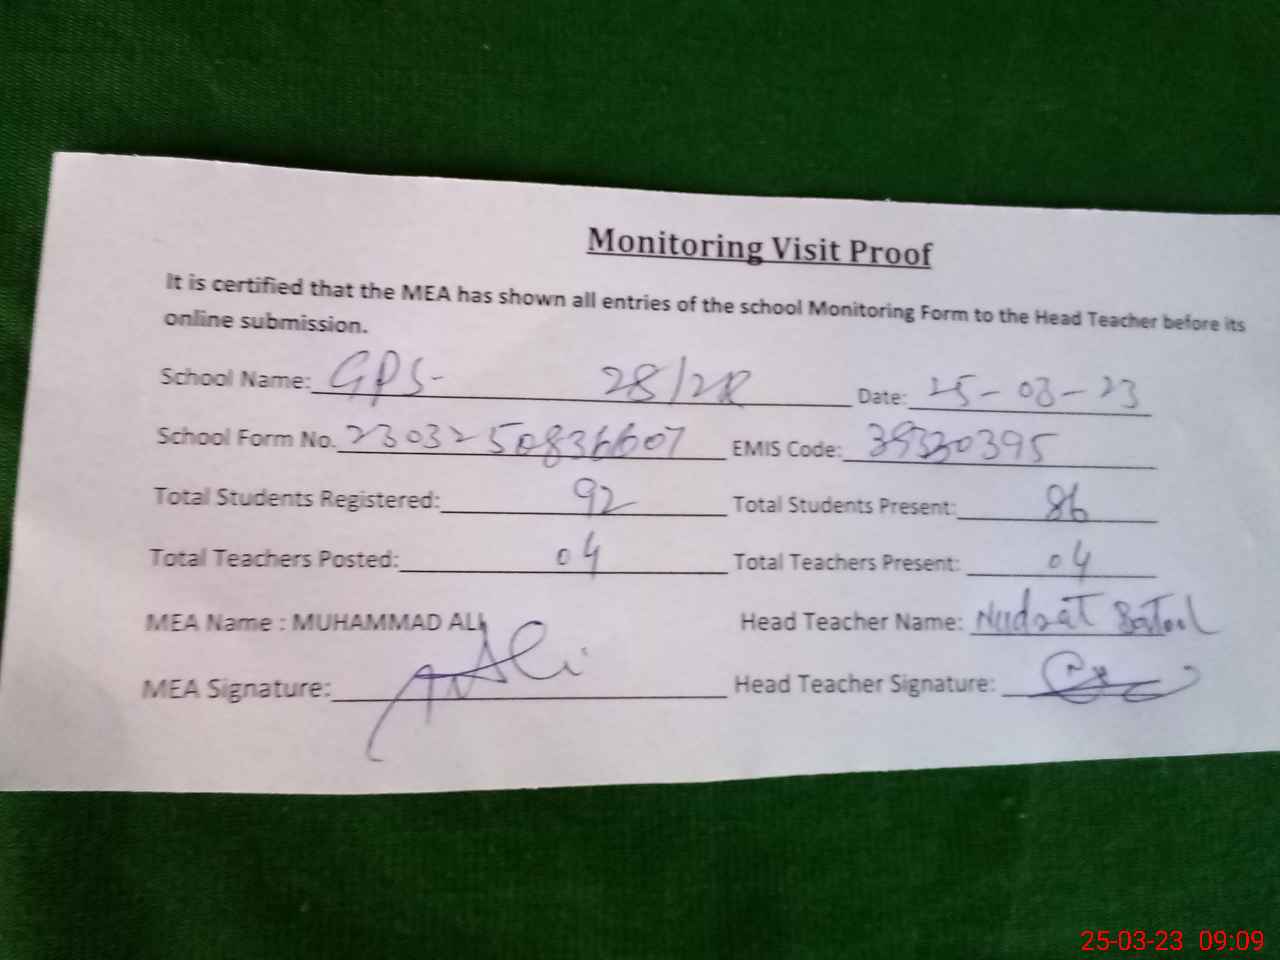 Monitoring Visit Proof
It is certified that the MEA has shown all entries of the school Monitoring Form to the Head Teacher before its
online submission.
School Name: GPS- 28/2R Date: 25-03-23
School Form No. 2303250836607 EMIS Code: 39330395
Total Students Registered: 92 Total Students Present: 86
Total Teachers Posted: 04 Total Teachers Present: 04
MEA Name : MUHAMMAD ALI Head Teacher Name: Nudrat Batool
MEA Signature: Head Teacher Signature:
25-03-23 09:09